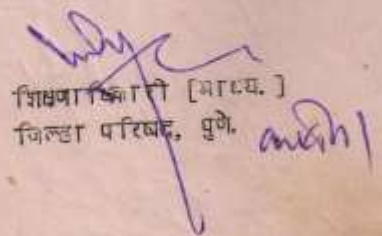 शिक्षणाधिकारी [माध्य.]
जिल्हा परिषद, पुणे.